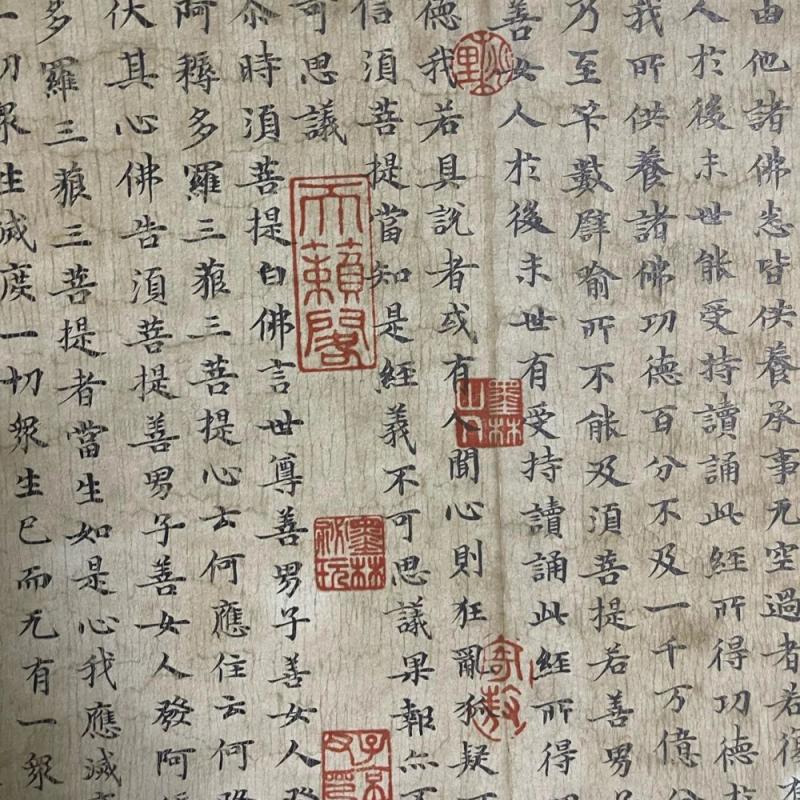 由他諸佛悉皆供養承事无空過者若復有
人於後末世能受持讀誦此經所得功德於
我所供養諸佛功德百分不及一千万億分
乃至筭數譬喻所不能及須菩提若善男子
善女人於後末世有受持讀誦此經所得
德我若具說者或有人聞心則狂亂狐疑不
信須菩提當知是經義不可思議果報亦不
可思議
尒時須菩提白佛言世尊善男子善女人發
阿耨多羅三藐三菩提心云何應住云何降
伏其心佛告須菩提善男子善女人發阿耨
多羅三藐三菩提者當生如是心我應滅度
一切衆生滅度一切衆生已而无有一衆
天籟閣
墨林山人
墨林祕玩
子京父印
寄敖